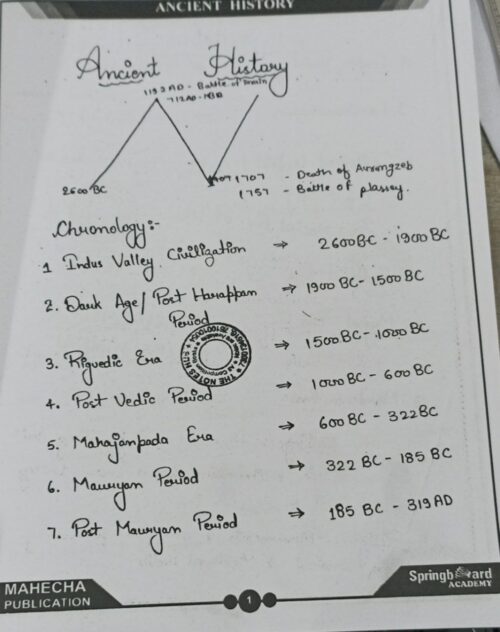 ANCIENT HISTORY
Ancient History
1192 AD - Battle of Tarain
712 AD - MBQ
2600 BC
1707 - Death of Aurangzeb
1757 - Battle of plassey.
Chronology:-
1 Indus Valley Civilization ⇒ 2600 BC - 1900 BC
2. Dark Age/ Post Harappan Period ⇒ 1900 BC - 1500 BC
3. Rigvedic Era ⇒ 1500 BC - 1000 BC
4. Post Vedic Period ⇒ 1000 BC - 600 BC
5. Mahajanpada Era ⇒ 600 BC - 322 BC
6. Mauryan Period ⇒ 322 BC - 185 BC
7. Post Mauryan Period ⇒ 185 BC - 319 AD
THE NOTES HUB
MAHECHA
PUBLICATION
1
Springboard
ACADEMY